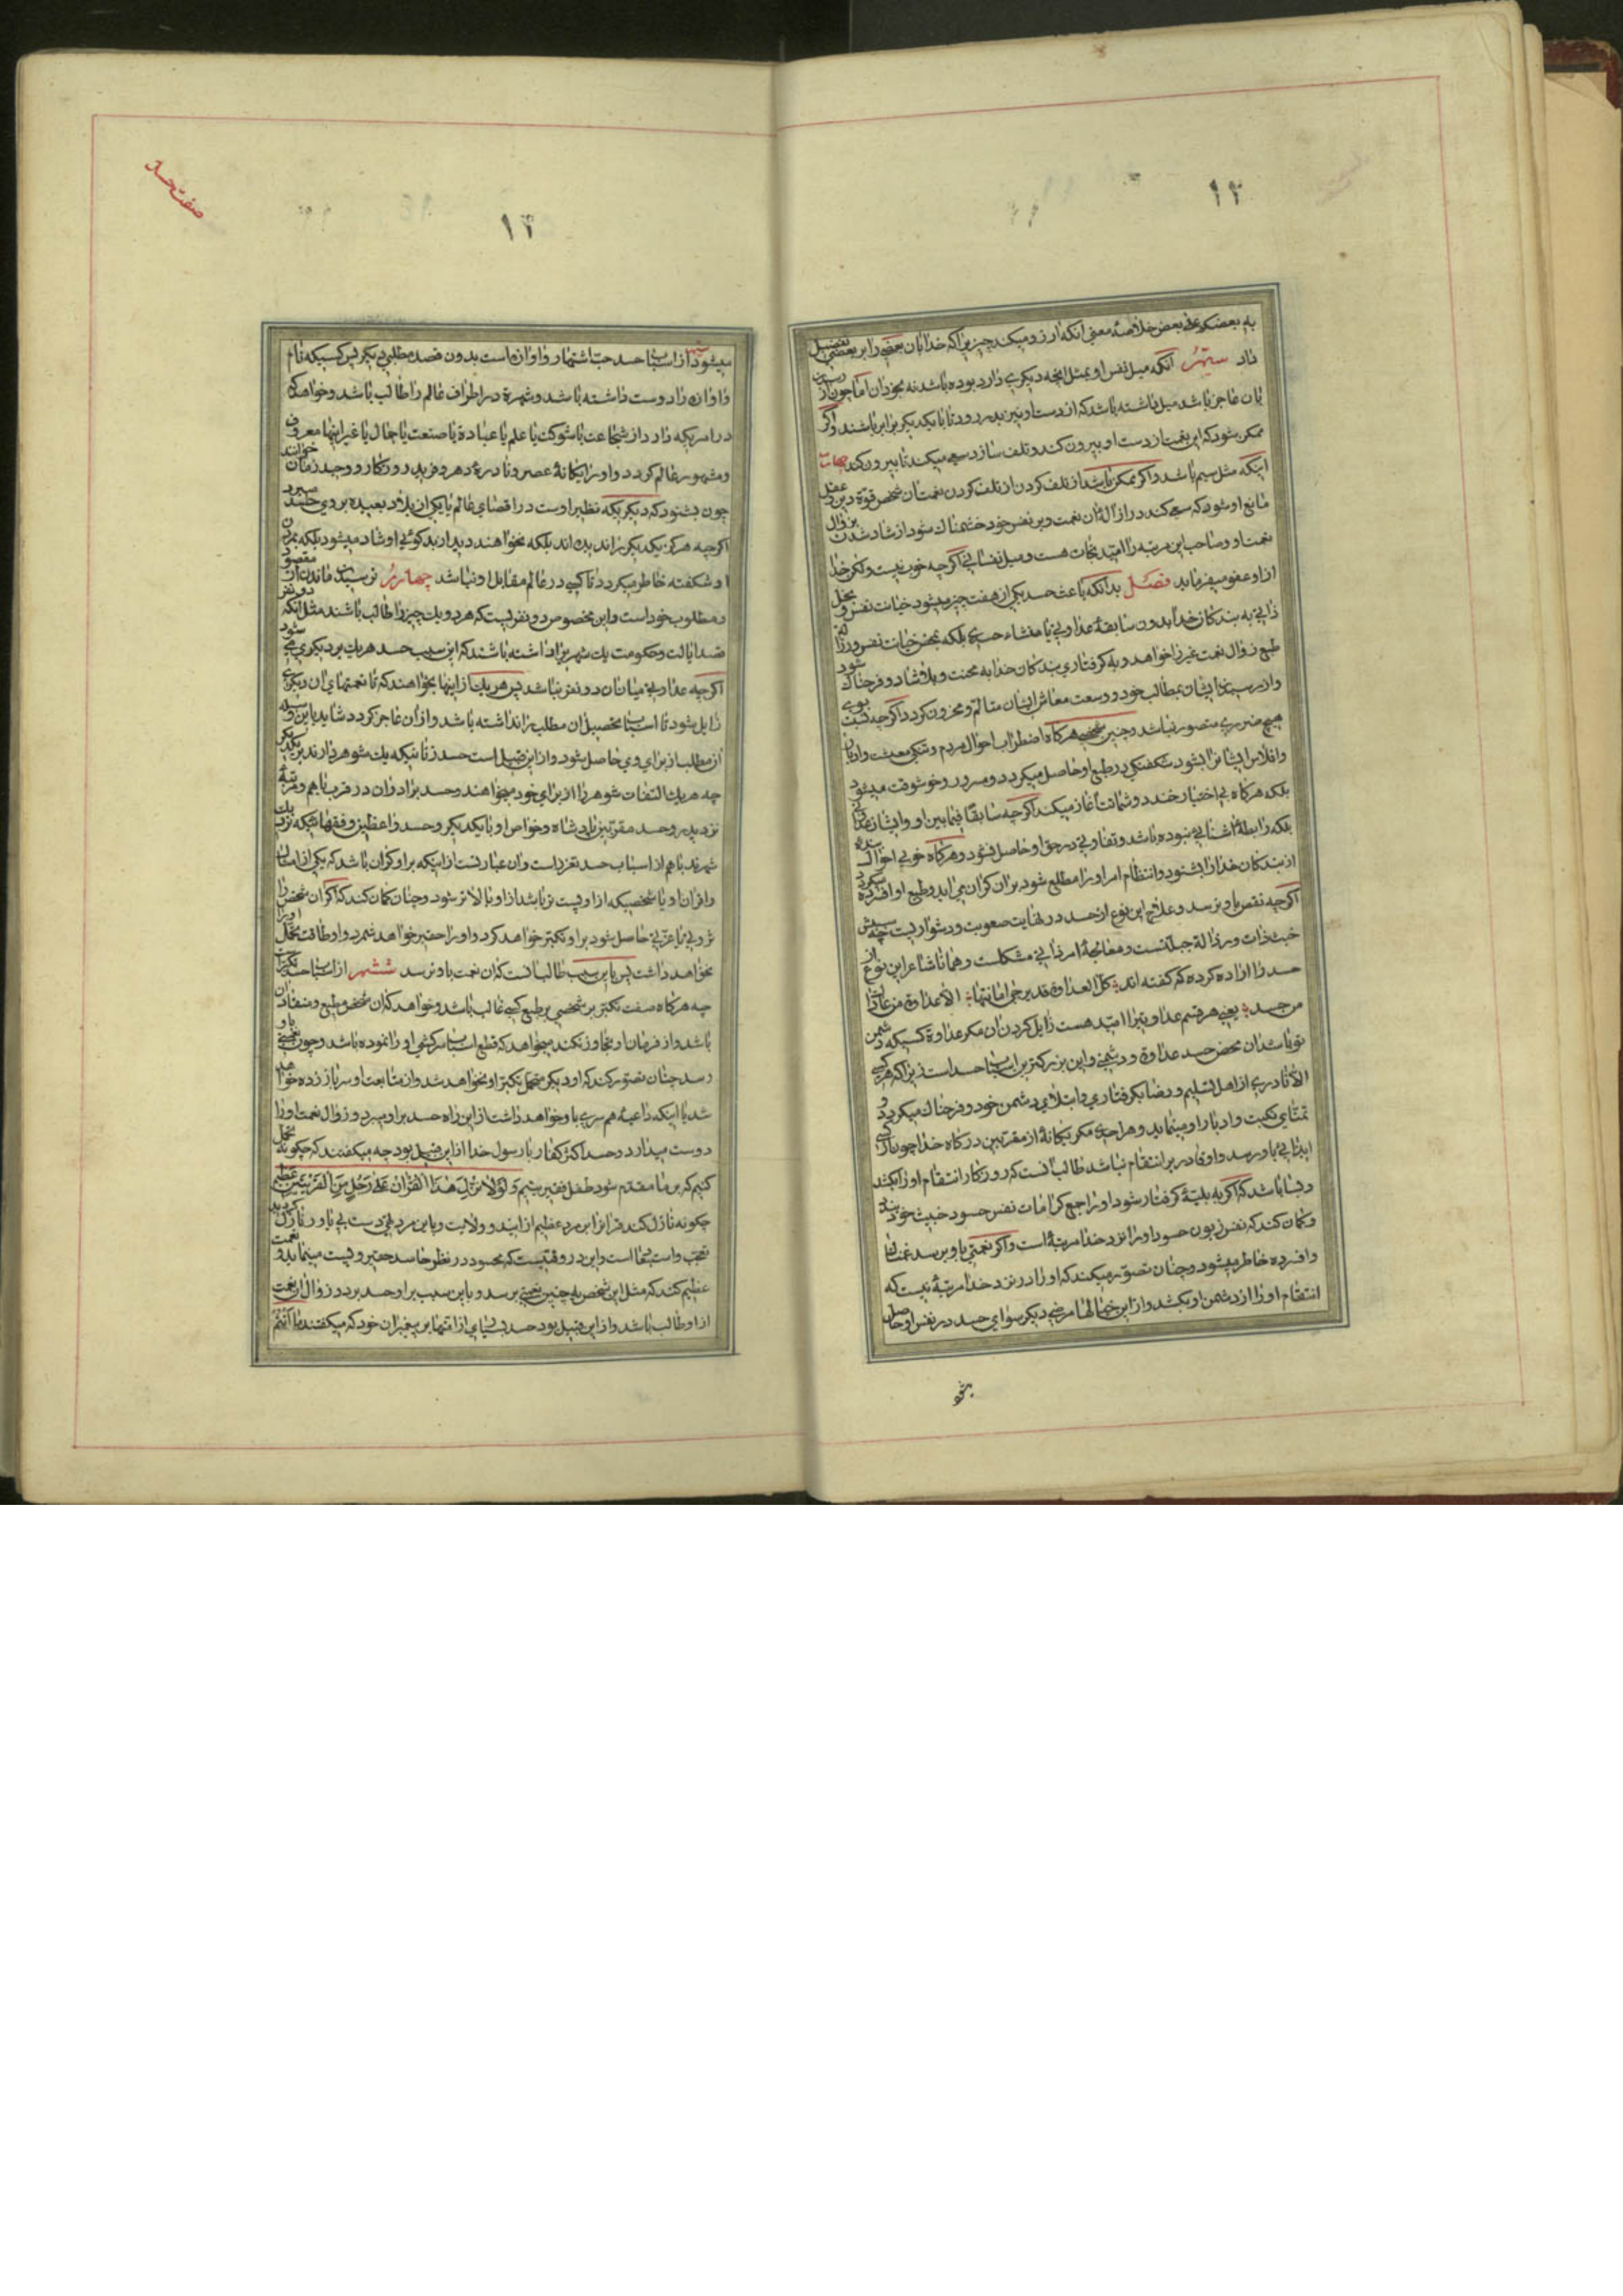 ۱۳
به بعضکم علی بعض خلاصهٔ معنی آنکه آرزو میکند چیزیرا که خدا بان بعضی را بر بعضی تفضیل
داد سیّم آنکه میل نفس او بمثل آنچه دیگری دارد بوده باشد نه بخود ان اما چون از رسیدن
بان عاجز باشد میل داشته باشد که از دست او نیز بدر رود تا با یکدیگر برابر باشند و اگر
ممکن شود که این نعمت از دست او بیرون کند و تلف سازد سعی میکند تا بیرون کند چهارم
اینکه مثل سیم باشد و اگر ممکن باشد از تلف کردن از تلف کردن نعمت ان شخص قوّة دین و عقل
مانع او شود که سعی کند در ازالهٔ ان نعمت و بر نفس خود خشمناك شود از شاد شدن بزوال
نعمت او و صاحب این مرتبه را امید نجات هست و میل نفسانی اگر چه خوب نیست و لکن خدا
از او عفو میفرماید فصل بدانکه باعث حسد یکی از هفت چیز میشود خباثت نفس و بخل
ذاتی به بندکان خدا بدون سابقهٔ عداوتی یا منشاء حسدی بلکه بمحض خباثت نفس و رذالت
طبع زوال نعمت غیر را خواهد و به کرفتاری بندکان خدا به محنت و بلا شاد و فرحناك شود
و از رسیدن ایشان بمطالب خود و وسعت معاش ایشان متالم و محزون کردد اگر چه نسبت بوی
هیچ ضرری متصور نباشد و چنین شخصی هرکاه اضطراب احوال مردم و تنگی معیشت و ادبار
و افلاس ایشانرا بشنود شکفتگی در طبع او حاصل میکردد و مسرور و خوشوقت میشود
بلکه هرکاه بی اختیار خندد و شماتت آغاز میکند اگر چه سابقا فیما بین او و ایشان عداوتی
بلکه رابطهٔ آشنائی نبوده باشد و تفاوتی در حق او حاصل نشود و هرکاه خوبی احوال بنده
از بندکان خدا را بشنود و انتظام امر او را مطلع شود بر ان کران می اید و طبع او افسرده میکردد
اگر چه نقصی باو نرسد و علاج این نوع از حسد در نهایت صعوبت و دشواریست چه سببش
خبث ذات و رذالة جبلّتست و معالجهٔ امر ذاتی مشکلست و همانا شاعر این نوع از
حسد را اراده کرده که گفته اند کل العداوة قد یرجی اماتتها الا عداوة من عاداك
من حسد یعنی هر قسم عداوتیرا امید هست زایل کردن ان مکر عداوة کسیکه دشمن
تو باشد از محض حسد عداوة و دشمنی و این بزرکترین اسباب حسد است زیرا که هر کسی
الا نادری از اهل تسلیم و رضا بکرفتاری و ابتلای دشمن خود فرحناك میکردد و
تمنّای نکبت و ادبار او مینماید و هر احدی مکر یکانهٔ از مقربین درکاه خدا چون از کسی
ایذائی باو رسد و او قادر بر انتقام نباشد طالب انست که روزکار انتقام او را بکشد
و بسا باشد که اگر به بلیهٔ کرفتار شود او را جمع کرامات نفس حسود خبیث خود داند
و کمان کند که نفس زبون حسود او را نزد خدا مرتبهٔ است و اگر نعمتی باو برسد غمناك
و افسرده خاطر میشود و چنان تصور میکند که او را در نزد خدا مرتبهٔ نیست که
انتقام او را از دشمن او بکشد و از این خیالها مرضی دیگر سوای حسد در نفس او حاصل
میشود
صفت حسد
۱۴
میشود سیّم از اسباب حسد حبّ اشتهار و اوازه است بدون قصد مطلبی دیگر پس کسیکه نام
و اوازه را دوست داشته باشد و شهرة در اطراف عالم را طالب باشد و خواهد که
در امریکه دارد از شجاعت یا شوکت یا علم یا عبادة یا صنعت یا جمال یا غیر اینها معروف
و مشهور عالم کردد و او را یکانهٔ عصر و نادرهٔ دهر و فرید روزکار و وحید زمان خوانند
چون بشنود که دیگریکه نظیر اوست در اقصای عالم یا یکی از بلاد بعیده بر وی حسد میبرد
اگر چه هرکز یکدیگر را ندیده اند بلکه نخواهند دید از بدکوئی او شاد میشود بلکه بمردن
او شکفته خاطر میکردد تا کسی در عالم مقابل او نباشد چهارم ترسیدن باز ماندن از مقصود
و مطلوب خود است و این مخصوص دو نفریست که هر دو یك چیز را طالب باشند مثل آنکه دو نفر
قصد ایالت و حکومت یك شهر را داشته باشند که این سبب حسد هر یك بر دیگری شود
اگر چه عداوتی میان ان دو نفر نباشد پس هر یك از اینها بخواهند که تا نعمتهای ان دیگری
زایل شود تا اسباب تحصیل ان مطلب را نداشته باشد و از ان عاجز کردد شاید باین وسیله
ان مطلب از برای وی حاصل شود و از این قبیل است حسد زنانیکه یك شوهر دارند بر یکدیگر
چه هر یك التفات شوهر را از برای خود میخواهند و حسد برادران در قرب باهم و مرتبهٔ
نزد پدر و حسد مقربین پادشاه و خواص او با یکدیگر و حسد واعظین و فقهائیکه نزد یك
شهرند باهم از اسباب حسد تعزز است و ان عبارتست از اینکه بر او کران باشد که یکی از امثال
و اقران و یا شخصیکه از او پست تر باشد از او بالاتر شود و چنان کمان کند که اگر ان شخص را
ثروتی یا عزتی حاصل شود بر او تکبر خواهد کرد و او را حقیر خواهد شمرد و او طاقت تحمل او را
نخواهد داشت پس باین سبب طالب انست که ان نعمت باو نرسد ششم از اسباب حسد تکبر است
چه هرکاه صفت تکبر بر شخصی بر طبع کسی غالب باشد و خواهد که ان شخص مطیع و منقاد ان
باشد و از فرمان او تجاوز نکند میخواهد که قطع اسباب سرکشی او را نموده باشد و چون نعمتی باو
رسد چنان تصور کند که او دیگر متحمل تکبر او نخواهد شد و از متابعت او سر باز زده خواهد
شد یا اینکه داعیهٔ همسری با او خواهد داشت از این راه حسد بر او میبرد و زوال نعمت او را
دوست میدارد و حسد اکثر کفار با رسول خدا از این قبیل بود چه میگفتند که چکونه تحمل
کنیم که بر ما مقدم شود طفل فقیر یتیم وَلَوْلا نُزِّلَ هٰذَا الْقُرْآنُ عَلىٰ رَجُلٍ مِنَ الْقَرْيَتَيْنِ عَظِيمٍ
چکونه نازل کند قرانرا بر مرد عظیم از ایندو ولایت و باین مرد تهی دست بی یاور نازل کردید
تعجب واستبعاد است و این در وقتیست که محسود در نظر حاسد حقیر و پست مینماید و نعمت
عظیم کند که مثل این شخص به چنین نعمتی برسد و باین سبب بر او حسد برد و زوال ان نعمت
از او طالب باشد و از این قبیل بود حسد بسیاری از امتها بر پیغمبران خود که میگفتند ما أنتم